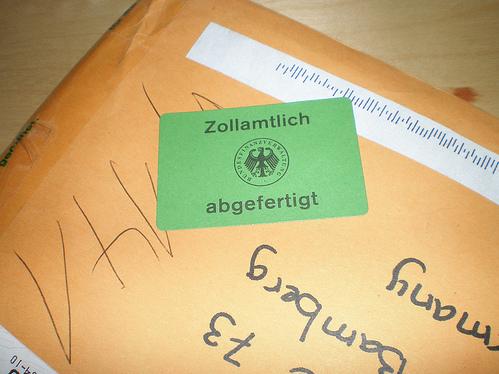 Zollamtlich
BUNDESFINANZVERWALTUNG
abgefertigt
73
Bamberg
many